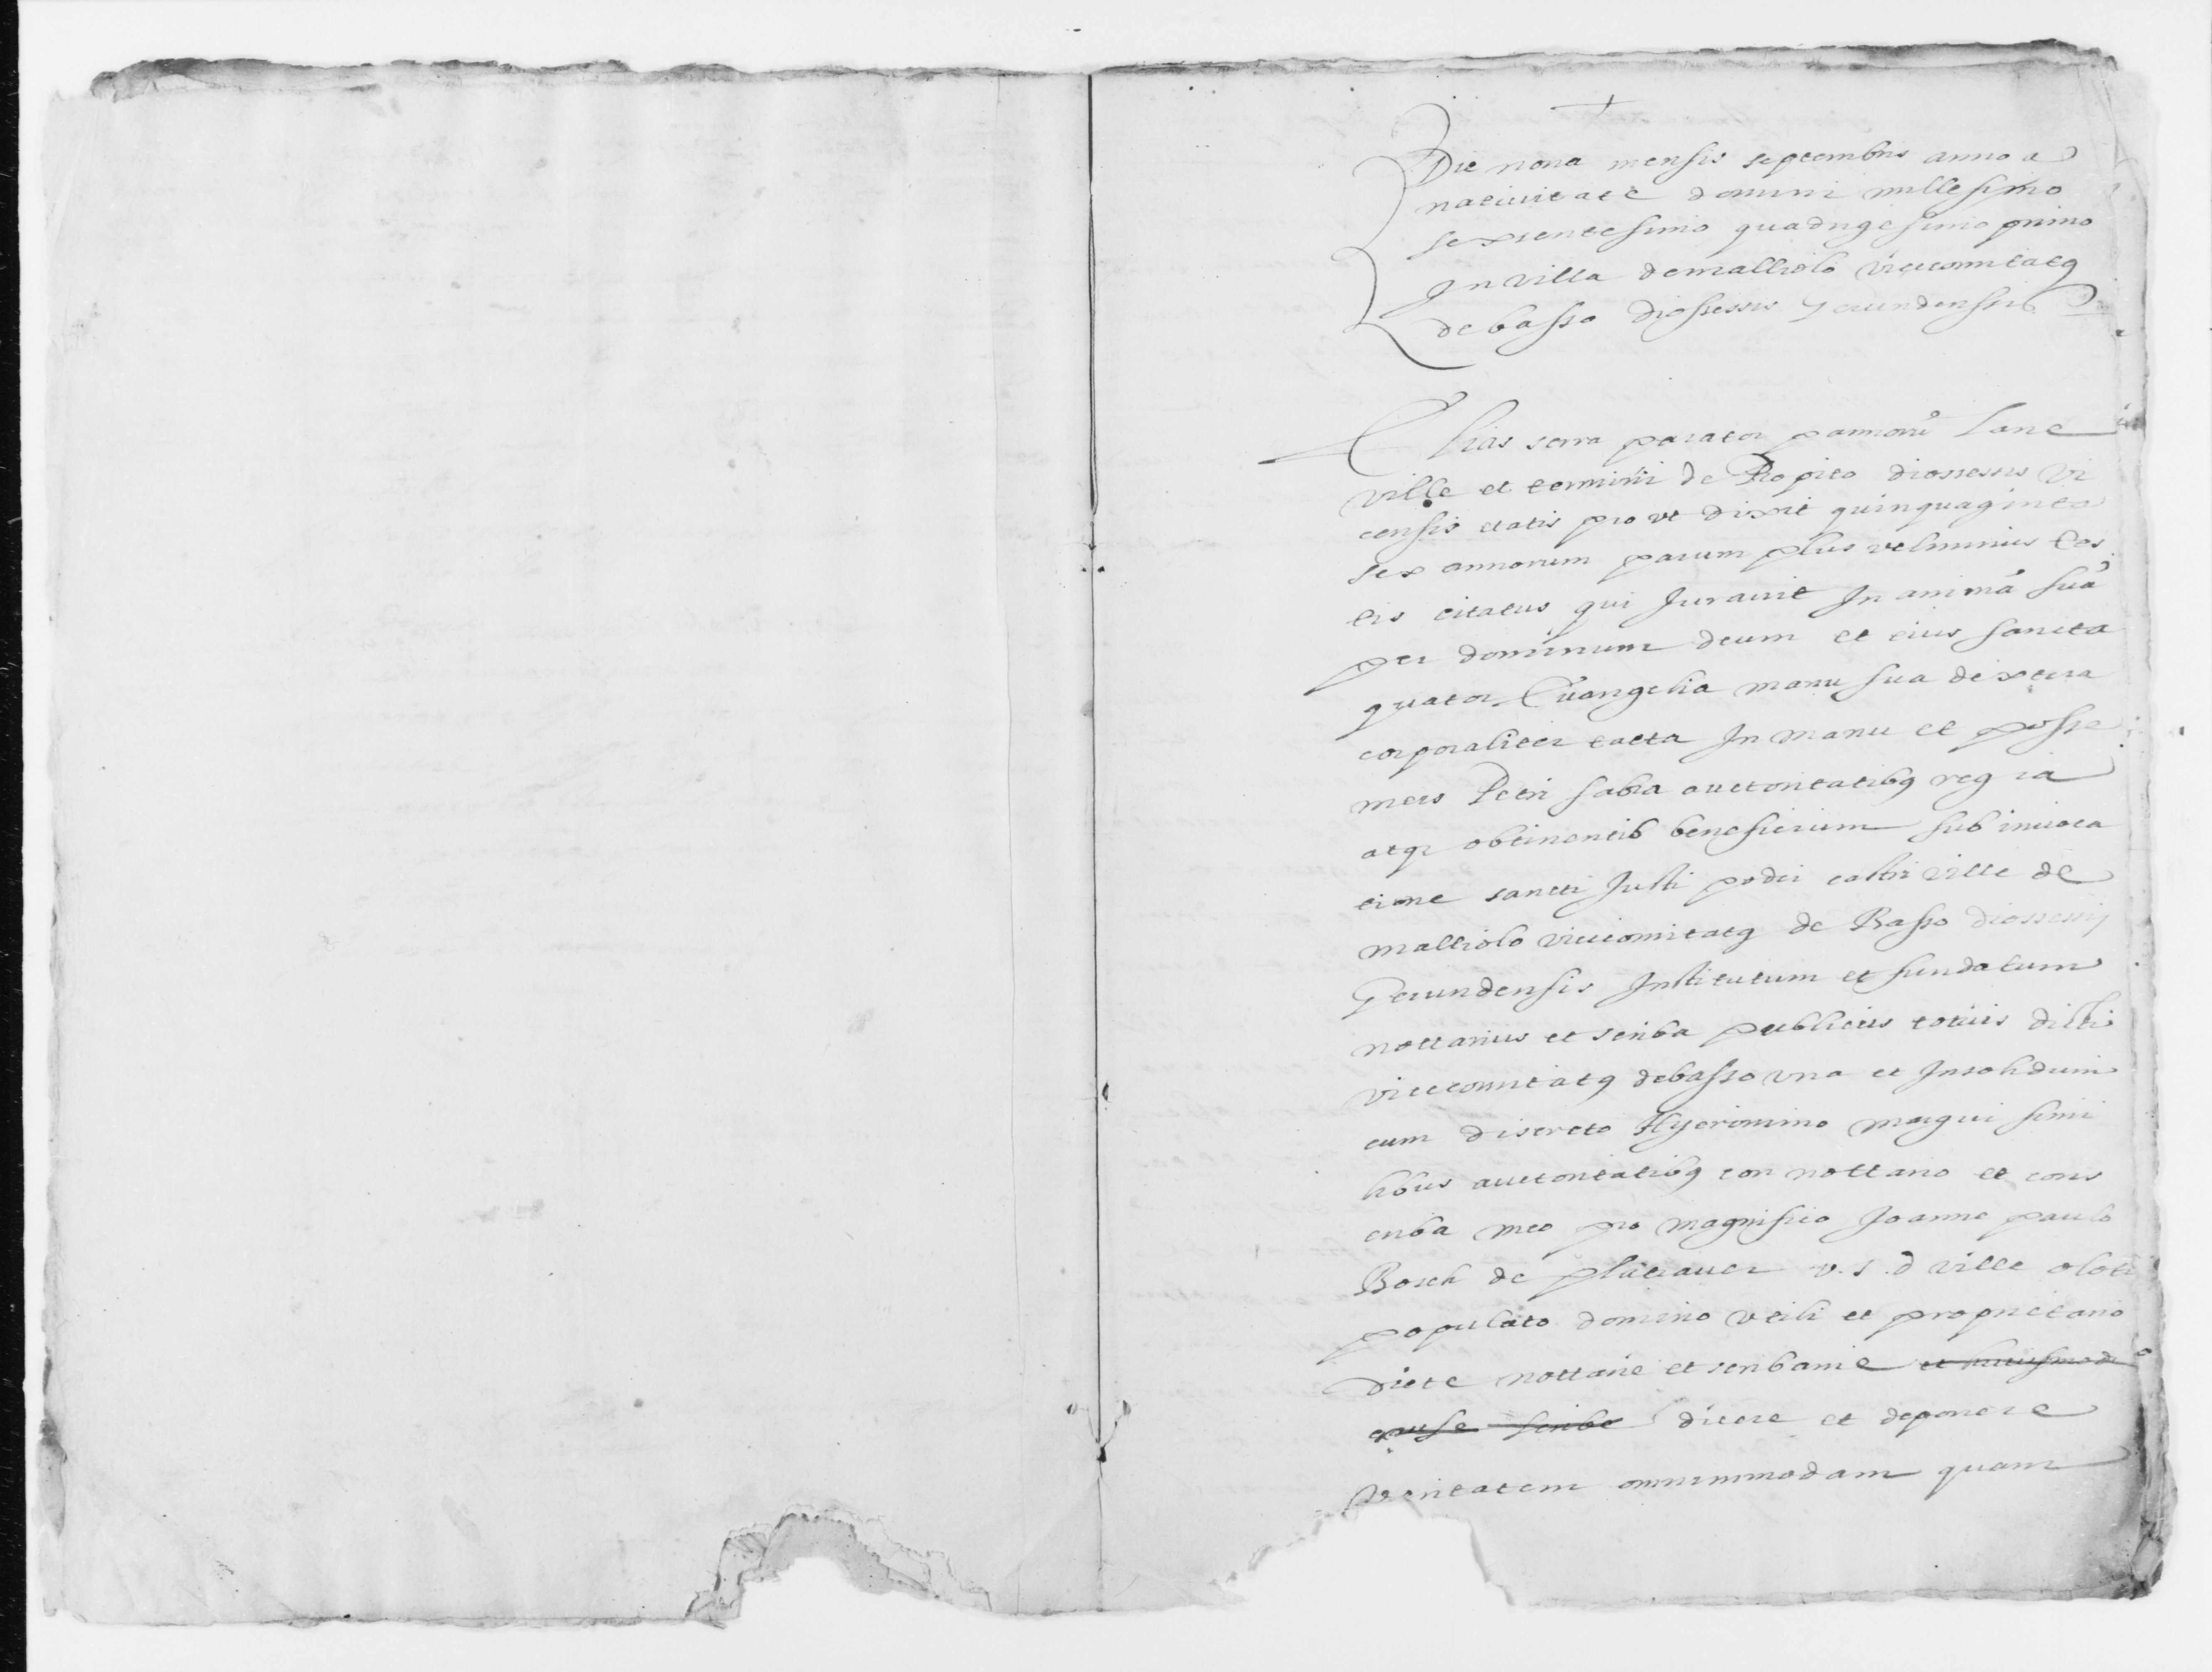 Die nona mensis septembris anno a
natiuitate domini millesimo
sexsentesimo quadrigesimo primo
In villa de malliolo vicecomitatq
de basso diossesis gerundensis
Elias serra parator pannorũ lane
ville et termini de Ropito diossesis vi
censis etatis pro vt dixit quinquaginta
sex annorum parum plus vel minus tes
tis citatus qui Jurauit In animã suã
per dominum deum et eius sancta
quator Euangelia manu sua dextera
corporaliter tacta In manu et posse
mers Petri sabra auctoritatibq regia
atqe obtinentis benefisium sub inuoca
cione sancti Justi podii castri ville de
malliolo vicecomitatq de Basso diossesis
Gerundensis Institutum et fundatum
nottarius et scriba publicus totius dicti
vicecomitatq de basso vna et Insolidum
cum discreto Hyeronimo simi
libus auctoritatibq con nottario et cons
criba meo pro magnifico Joanne paulo
Bosch de platrauer v.J.d ville oloti
populato domino vtili et proprietario
dicte nottarie et scribanie et huiusmodi
cause scriba dicere et deponere
veritatem omnimmodam quam